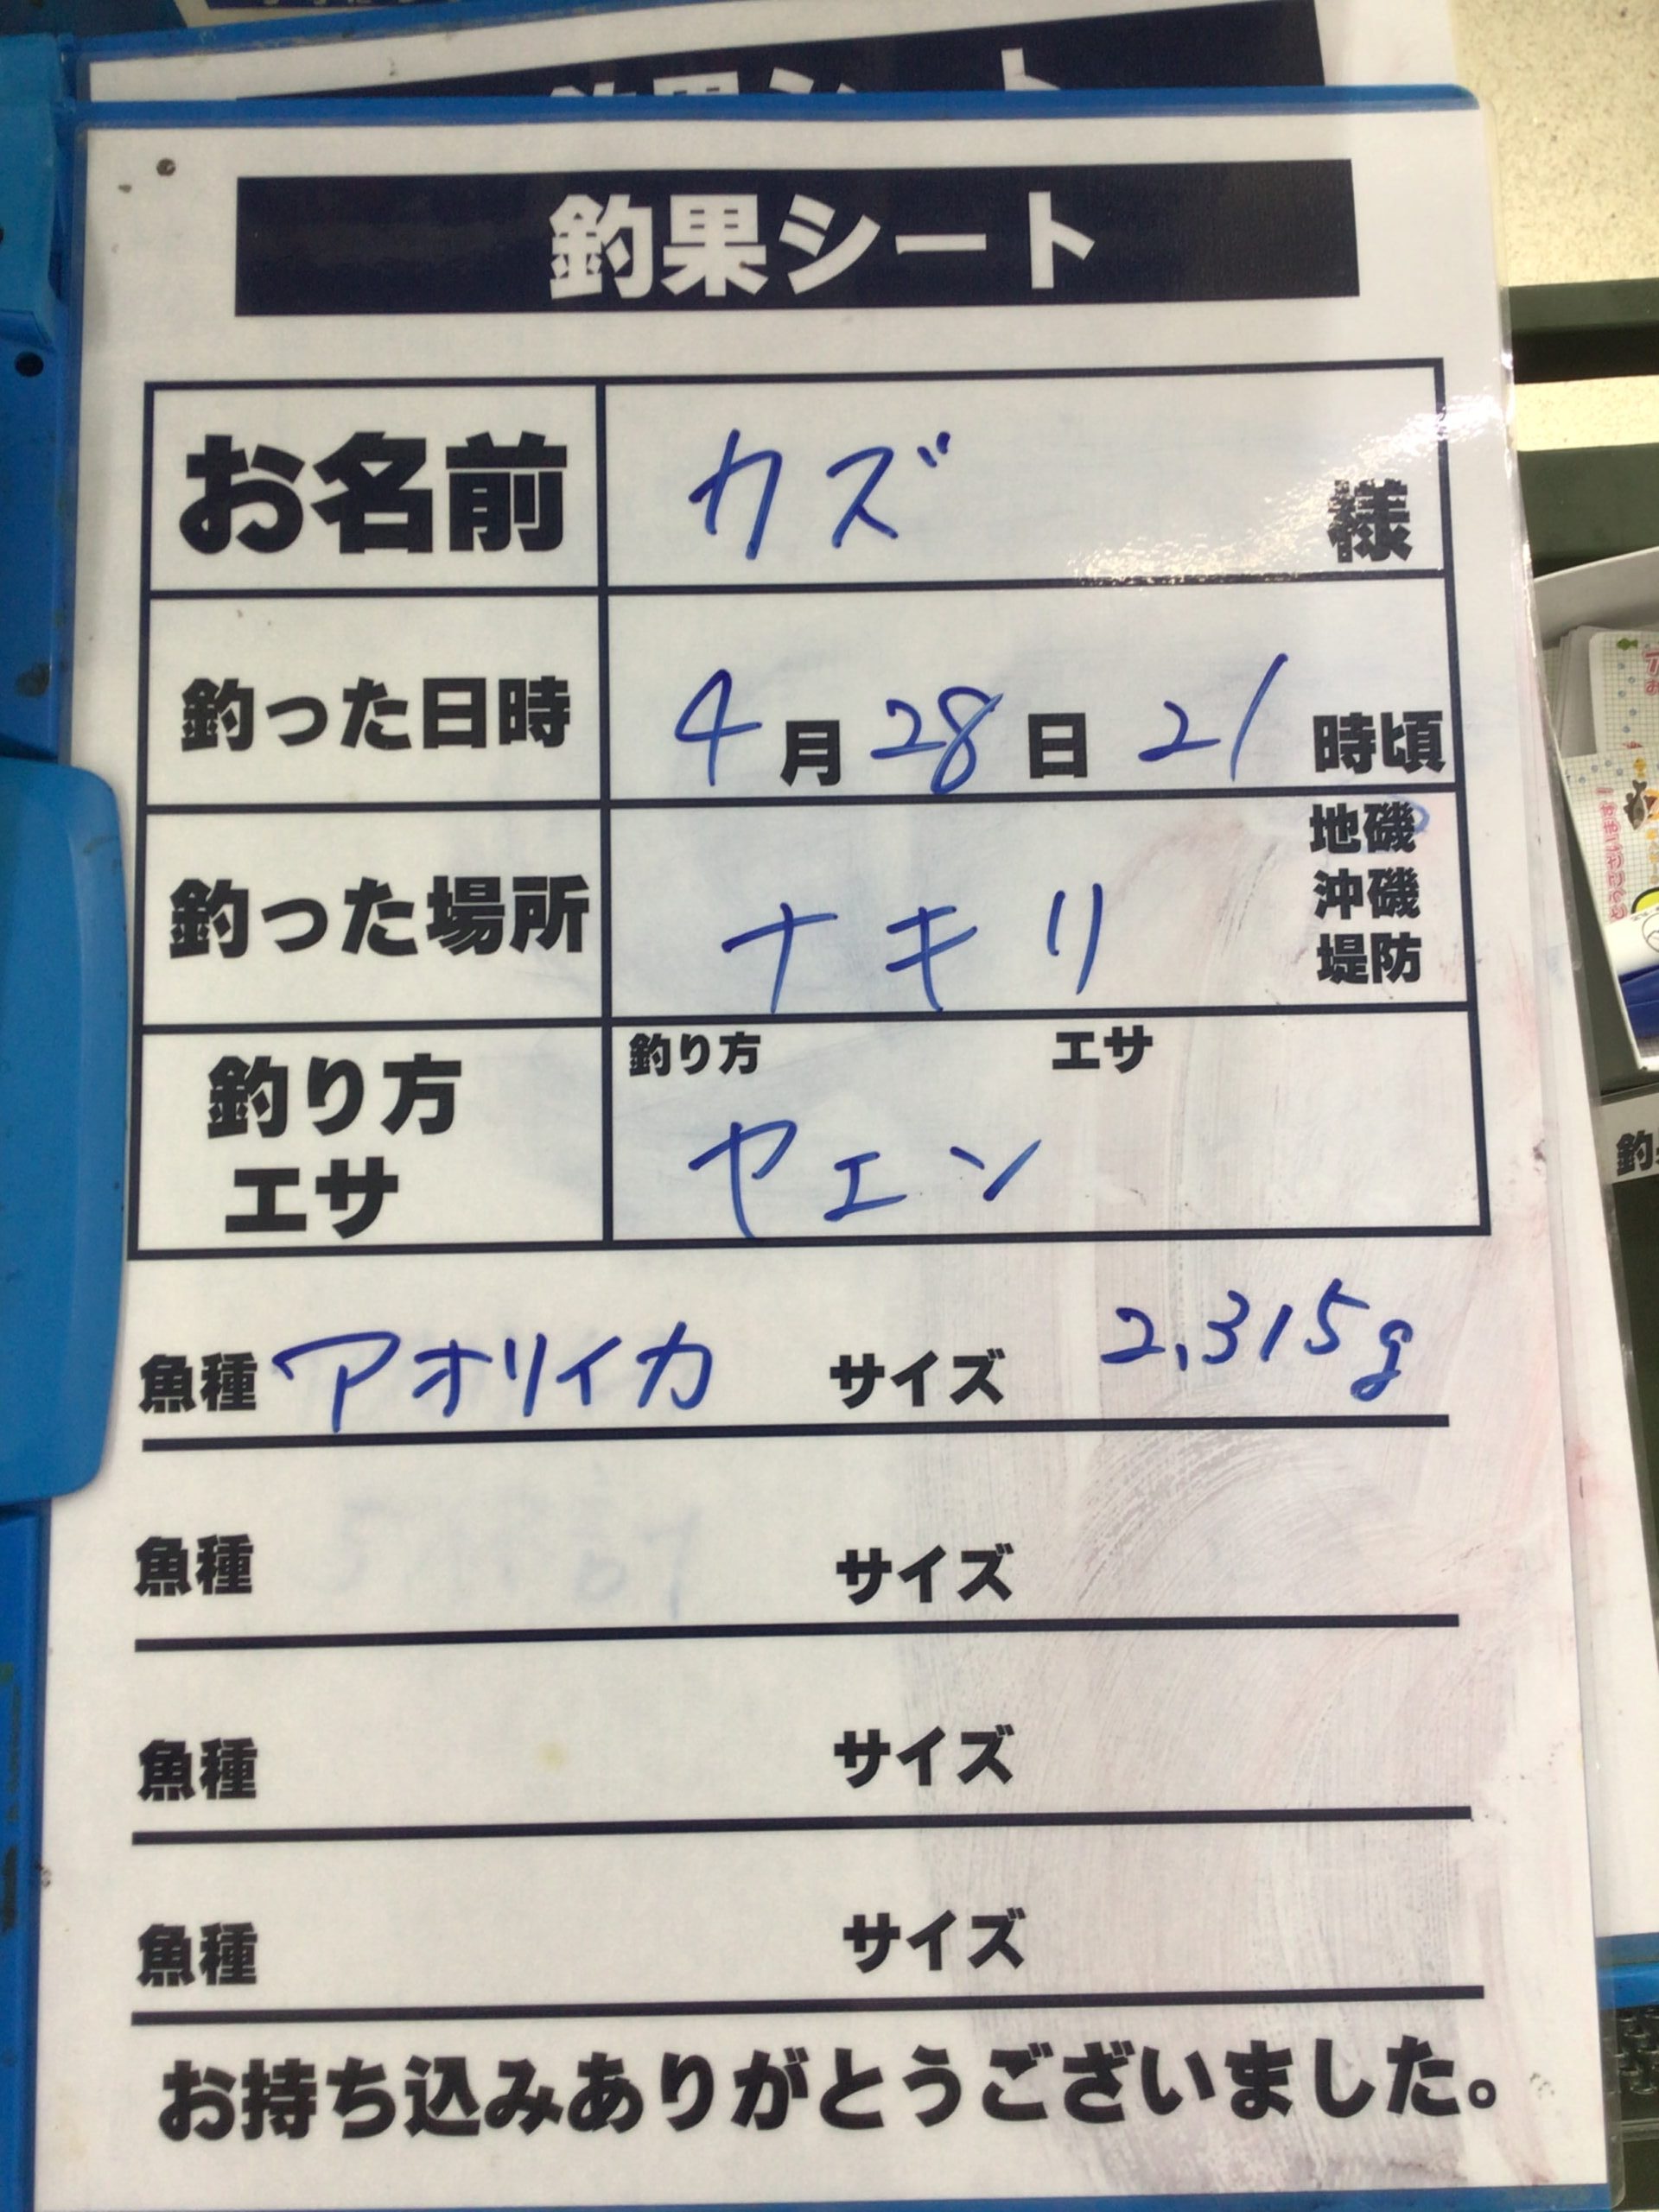 釣果シート
釣果シート
お名前 カズ 様
釣った日時 4月28日21時頃
釣った場所 ナキリ 地磯 沖磯 堤防
釣り方 エサ
釣り方 エサ ヤエン
魚種 アオリイカ サイズ 2,315g
魚種 サイズ
魚種 サイズ
魚種 サイズ
お持ち込みありがとうございました。